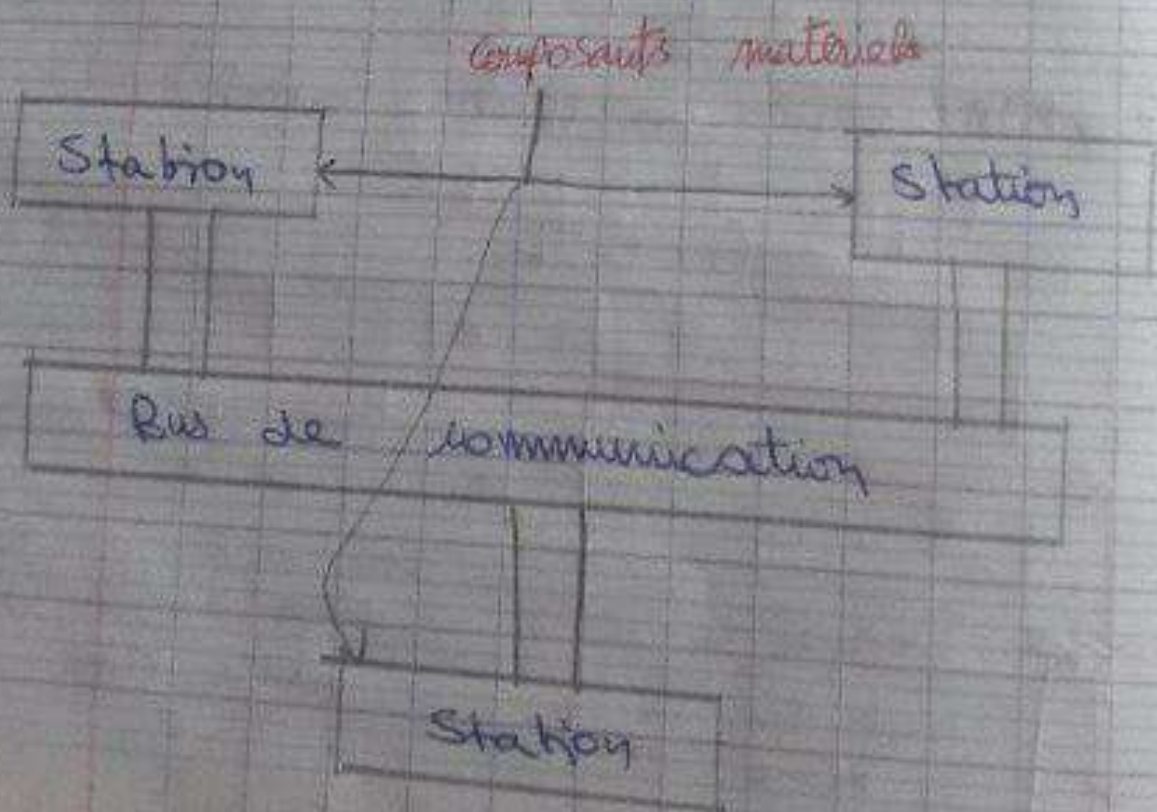 composants matériels
Station
Station
Bus de communication
Station